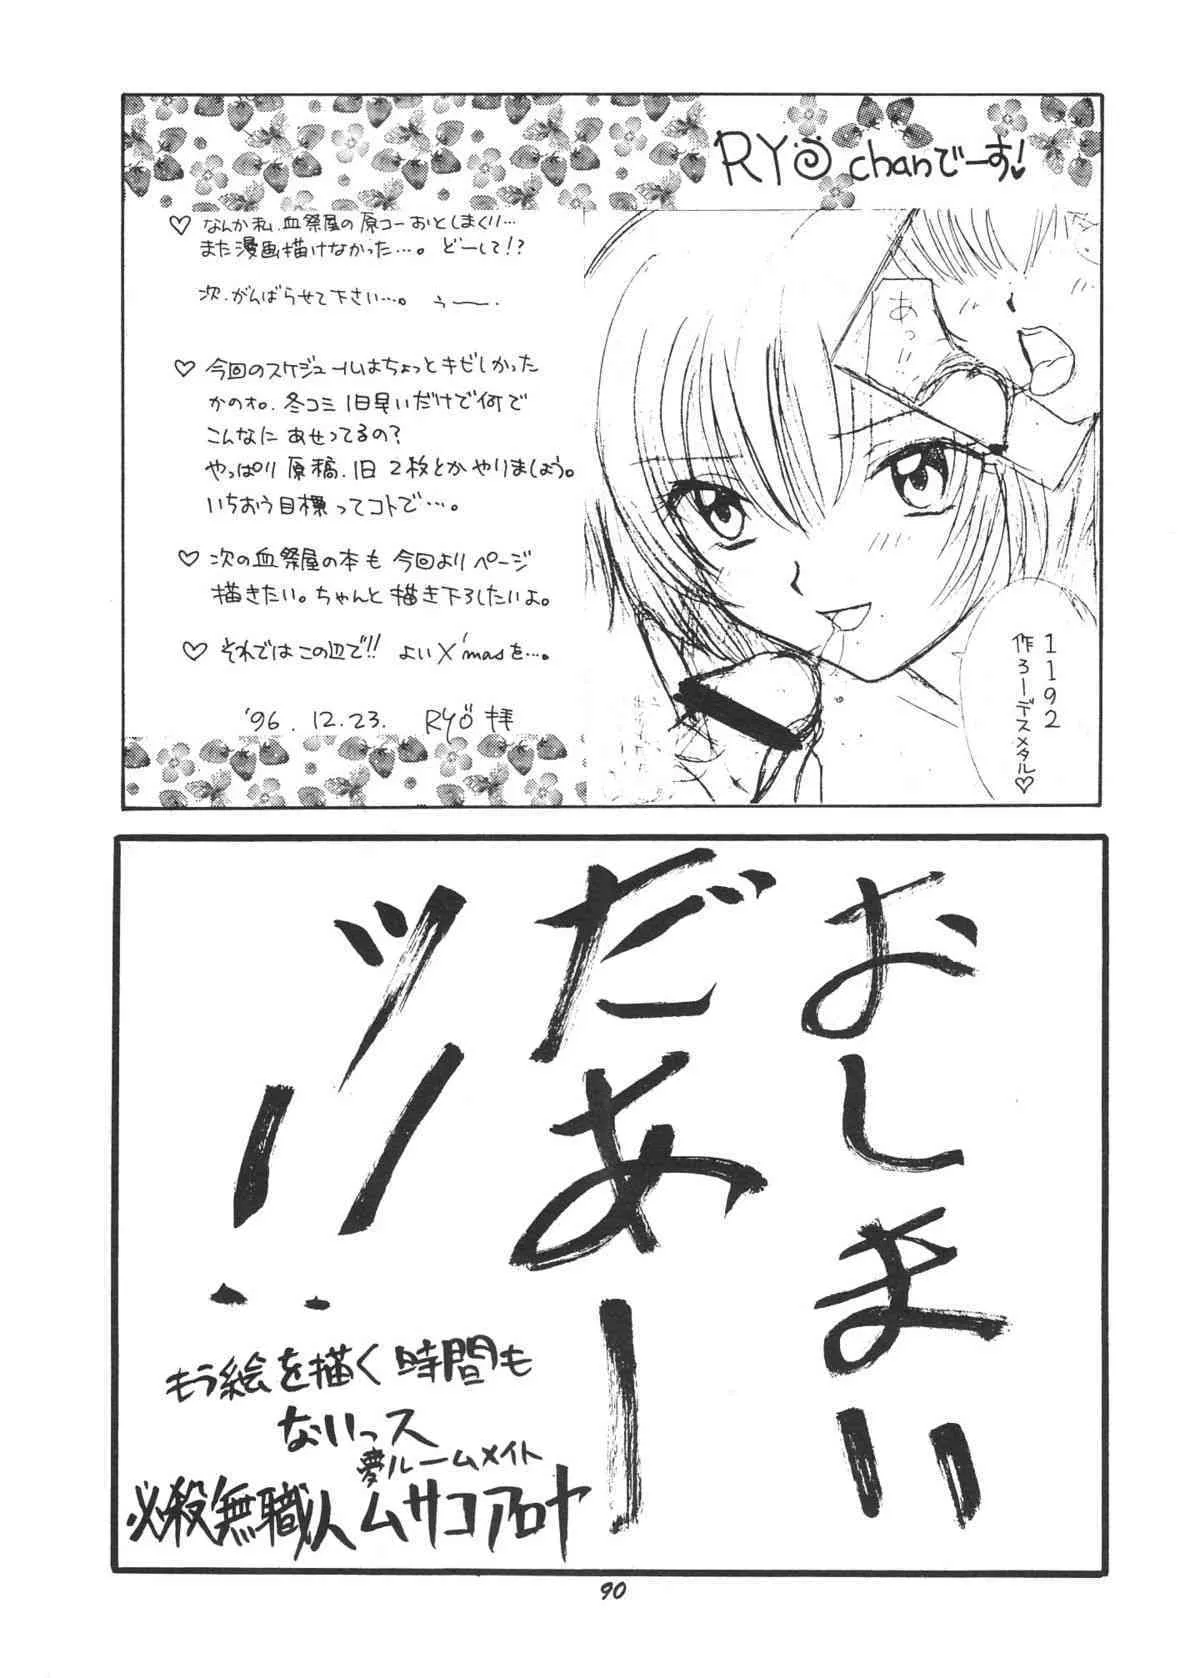 RYO chanでーす!
♡ なんか私、血祭屋の原コーおとしまくり…
また漫画描けなかった…。どーして!?
次、がんばらせて下さい…。うー。
♡ 今回のスケジュールはちょっとキビしかった
かのオ。冬コミ1日早いだけで何で
こんなに あせってるの?
やっぱり 原稿、1日 2枚とか やりましょう。
いちおう目標ってコトで…。
♡ 次の血祭屋の本も 今回より ページ
描きたい。ちゃんと 描き下ろしたいよ。
♡ それでは この辺で!! よいX'masを…。
'96. 12. 23. RYO 拝
あっ
1192
作ろーデスメタル♡
おしまい
だあー
ッ!!
もう絵を描く時間も
ないっス
夢ルームメイト
必殺無職人 ムサコアロヤ
90